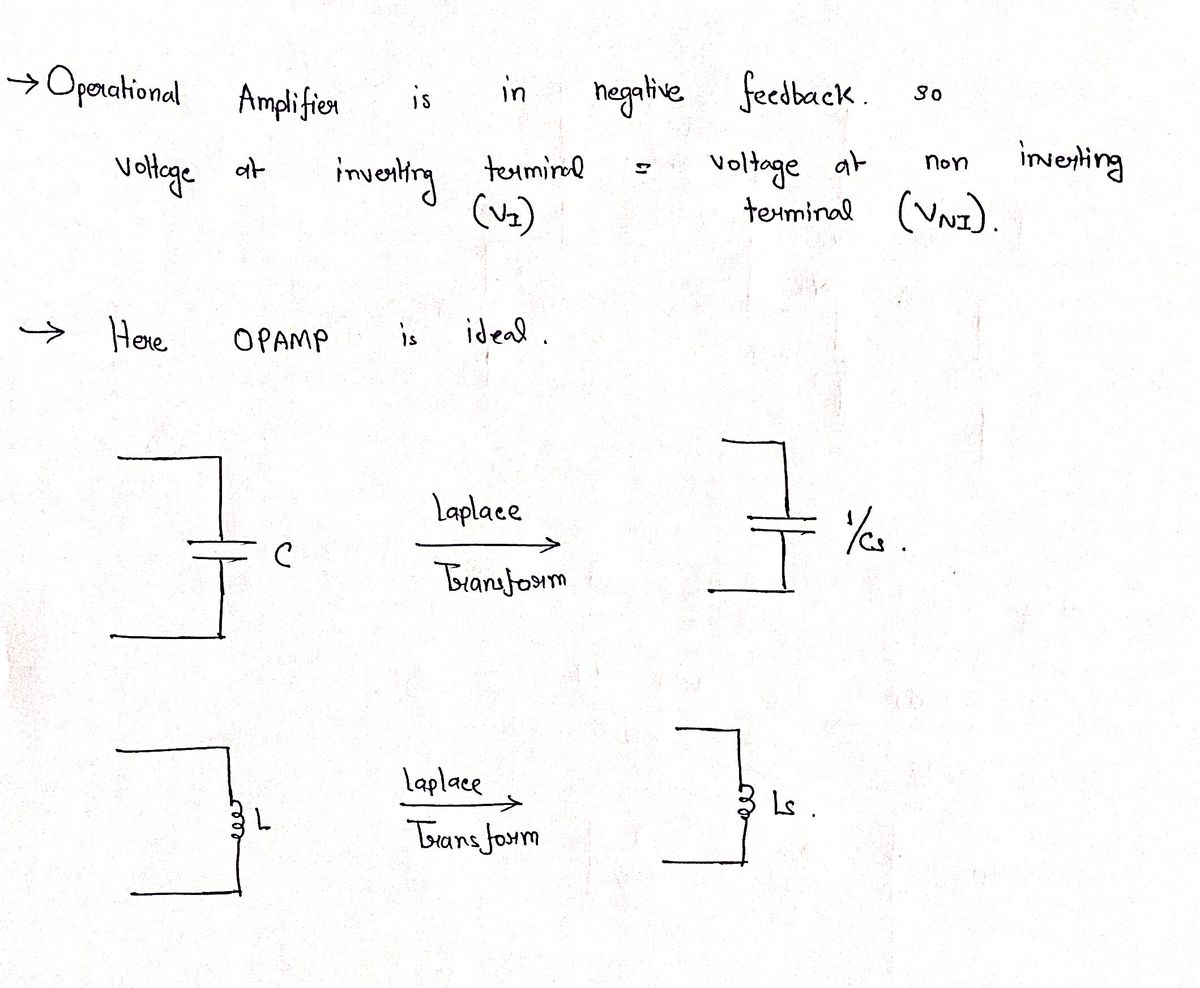 → Operational Amplifier is in negative feedback. so
Voltage at inverting terminal = voltage at non inverting
(V_I) terminal (V_NI).
→ Here OPAMP is ideal.
C
Laplace
Transform
1/Cs.
L
Laplace
Transform
Ls.